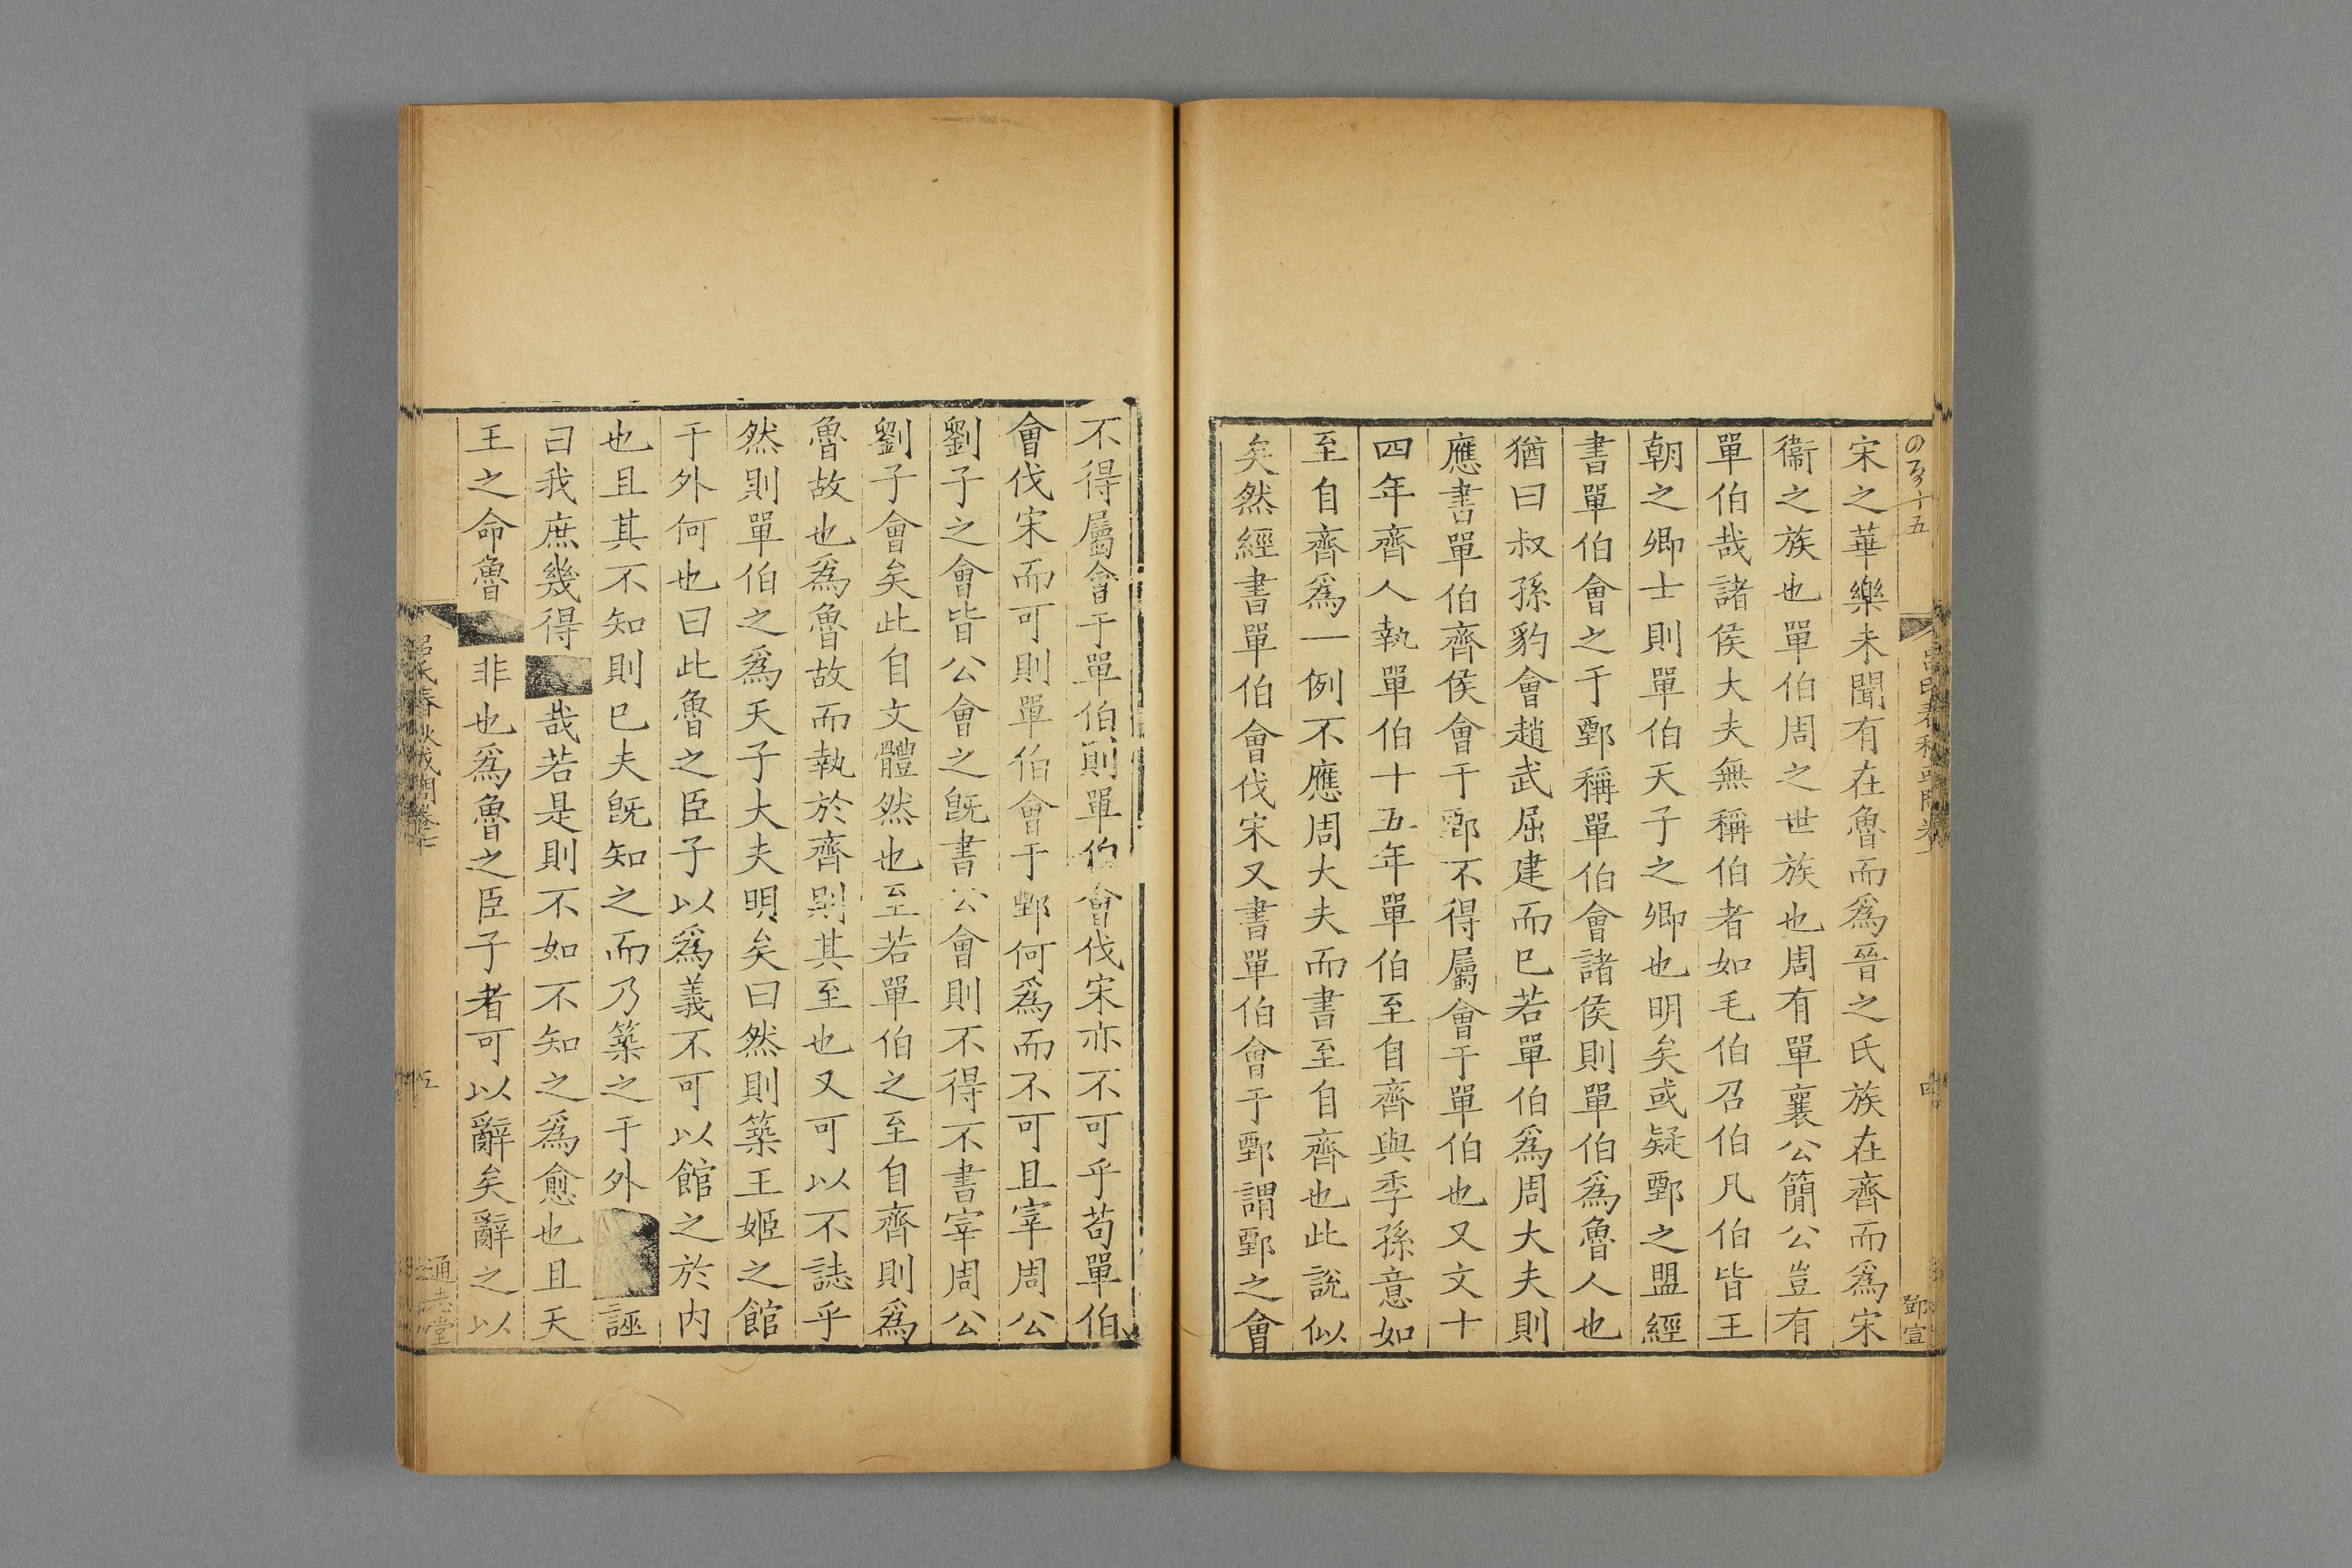 宋之華樂未聞有在魯而爲晉之氏族在齊而爲宋
衞之族也單伯周之世族也周有單襄公簡公豈有
單伯哉諸侯大夫無稱伯者如毛伯召伯凡伯皆王
朝之卿士則單伯天子之卿也明矣或疑鄄之盟經
書單伯會之于鄄稱單伯會諸侯則單伯爲魯人也
猶曰叔孫豹會趙武屈建而已若單伯爲周大夫則
應書單伯齊侯會于鄄不得屬會于單伯也又文十
四年齊人執單伯十五年單伯至自齊與季孫意如
至自齊爲一例不應周大夫而書至自齊也此說似
矣然經書單伯會伐宋又書單伯會于鄄謂鄄之會
鄧宣
不得屬會于單伯則單伯會伐宋亦不可乎苟單伯
會伐宋而可則單伯會于鄄何爲而不可且宰周公
劉子之會皆公會之旣書公會則不得不書宰周公
劉子會矣此自文體然也至若單伯之至自齊則爲
魯故也爲魯故而執於齊則其至也又可以不誌乎
然則單伯之爲天子大夫明矣曰然則築王姬之館
于外何也曰此魯之臣子以爲義不可以館之於内
也且其不知則已夫旣知之而乃築之于外誣
曰我庶幾得哉若是則不如不知之爲愈也且天
王之命魯非也爲魯之臣子者可以辭矣辭之以
呂氏春秋或問卷七 五 通志堂